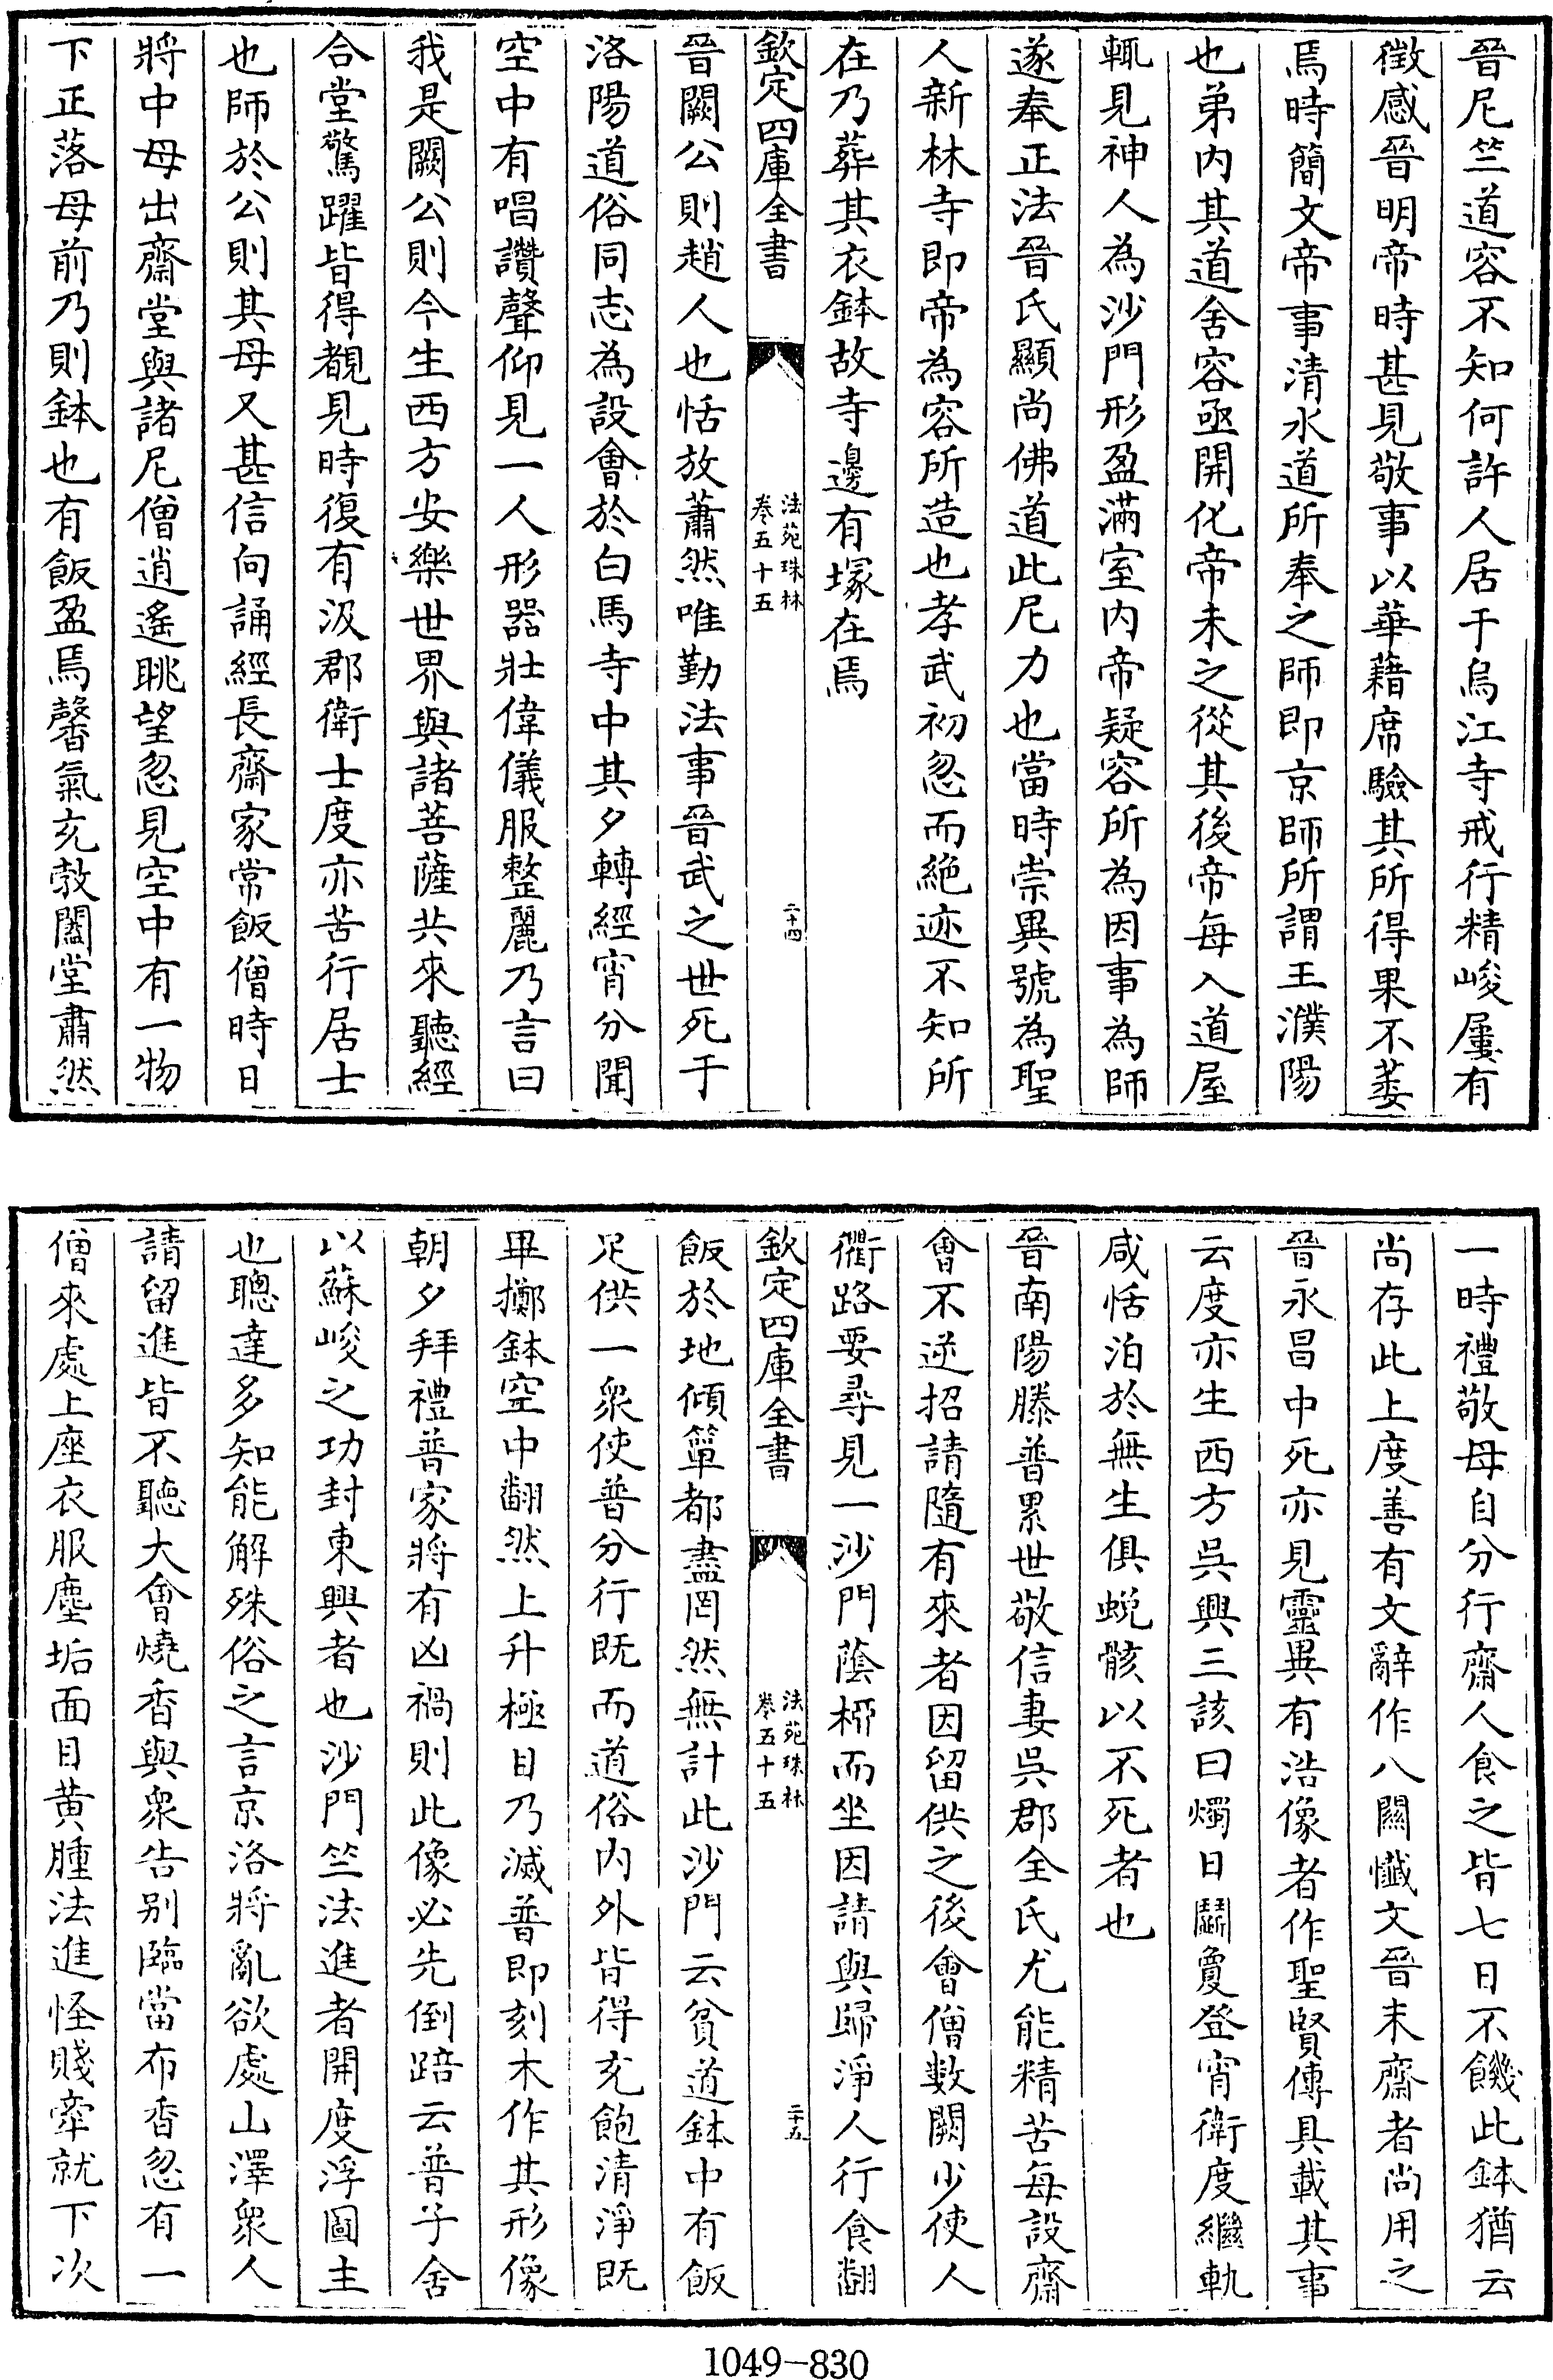 晉尼竺道容不知何許人居于烏江寺戒行精峻屢有
徴感晉明帝時甚見敬事以華藉席驗其所得果不萎
焉時簡文帝事清水道所奉之師即京師所謂王濮陽
也弟内其道舍容亟開化帝未之從其後帝每入道屋
輒見神人為沙門形盈滿室内帝疑容所為因事為師
遂奉正法晉氏顯尚佛道此尼力也當時崇異號為聖
人新林寺即帝為容所造也孝武初忽而絶迹不知所
在乃葬其衣鉢故寺邊有塚在焉
欽定四庫全書
法苑珠林
卷五十五
二十四
晉闕公則趙人也恬放蕭然唯勤法事晉武之世死于
洛陽道俗同志為設會於白馬寺中其夕轉經宵分聞
空中有唱讚聲仰見一人形器壯偉儀服整麗乃言曰
我是闕公則今生西方安樂世界與諸菩薩共來聽經
合堂驚躍皆得覩見時復有汲郡衛士度亦苦行居士
也師於公則其母又甚信向誦經長齋家常飯僧時日
將中母出齋堂與諸尼僧逍遙眺望忽見空中有一物
下正落母前乃則鉢也有飯盈焉馨氣充敎闔堂肅然
一時禮敬母自分行齋人食之皆七日不饑此鉢猶云
尚存此上度善有文辭作八關懺文晉末齋者尚用之
晉永昌中死亦見靈異有浩像者作聖賢傳具載其事
云度亦生西方吳興三該曰燭日鬬夐登宵衛度繼軌
咸恬泊於無生俱蜕骸以不死者也
晉南陽滕普累世敬信妻吳郡全氏尤能精苦每設齋
會不逆招請隨有來者因留供之後會僧數闕少使人
衢路要尋見一沙門蔭栁而坐因請與歸淨人行食翻
欽定四庫全書
法苑珠林
卷五十五
二十五
飯於地傾簞都盡罔然無計此沙門云貧道鉢中有飯
足供一衆使普分行既而道俗内外皆得充飽清淨既
畢擲鉢空中翻然上升極目乃滅普即刻木作其形像
朝夕拜禮普家將有凶禍則此像必先倒踣云普子舍
以蘇峻之功封東興者也沙門竺法進者開度浮圖主
也聰達多知能解殊俗之言京洛將亂欲處山澤衆人
請留進皆不聽大會燒香與衆告别臨當布香忽有一
僧來處上座衣服塵垢面目黄腫法進怪賤牽就下次
1049-830